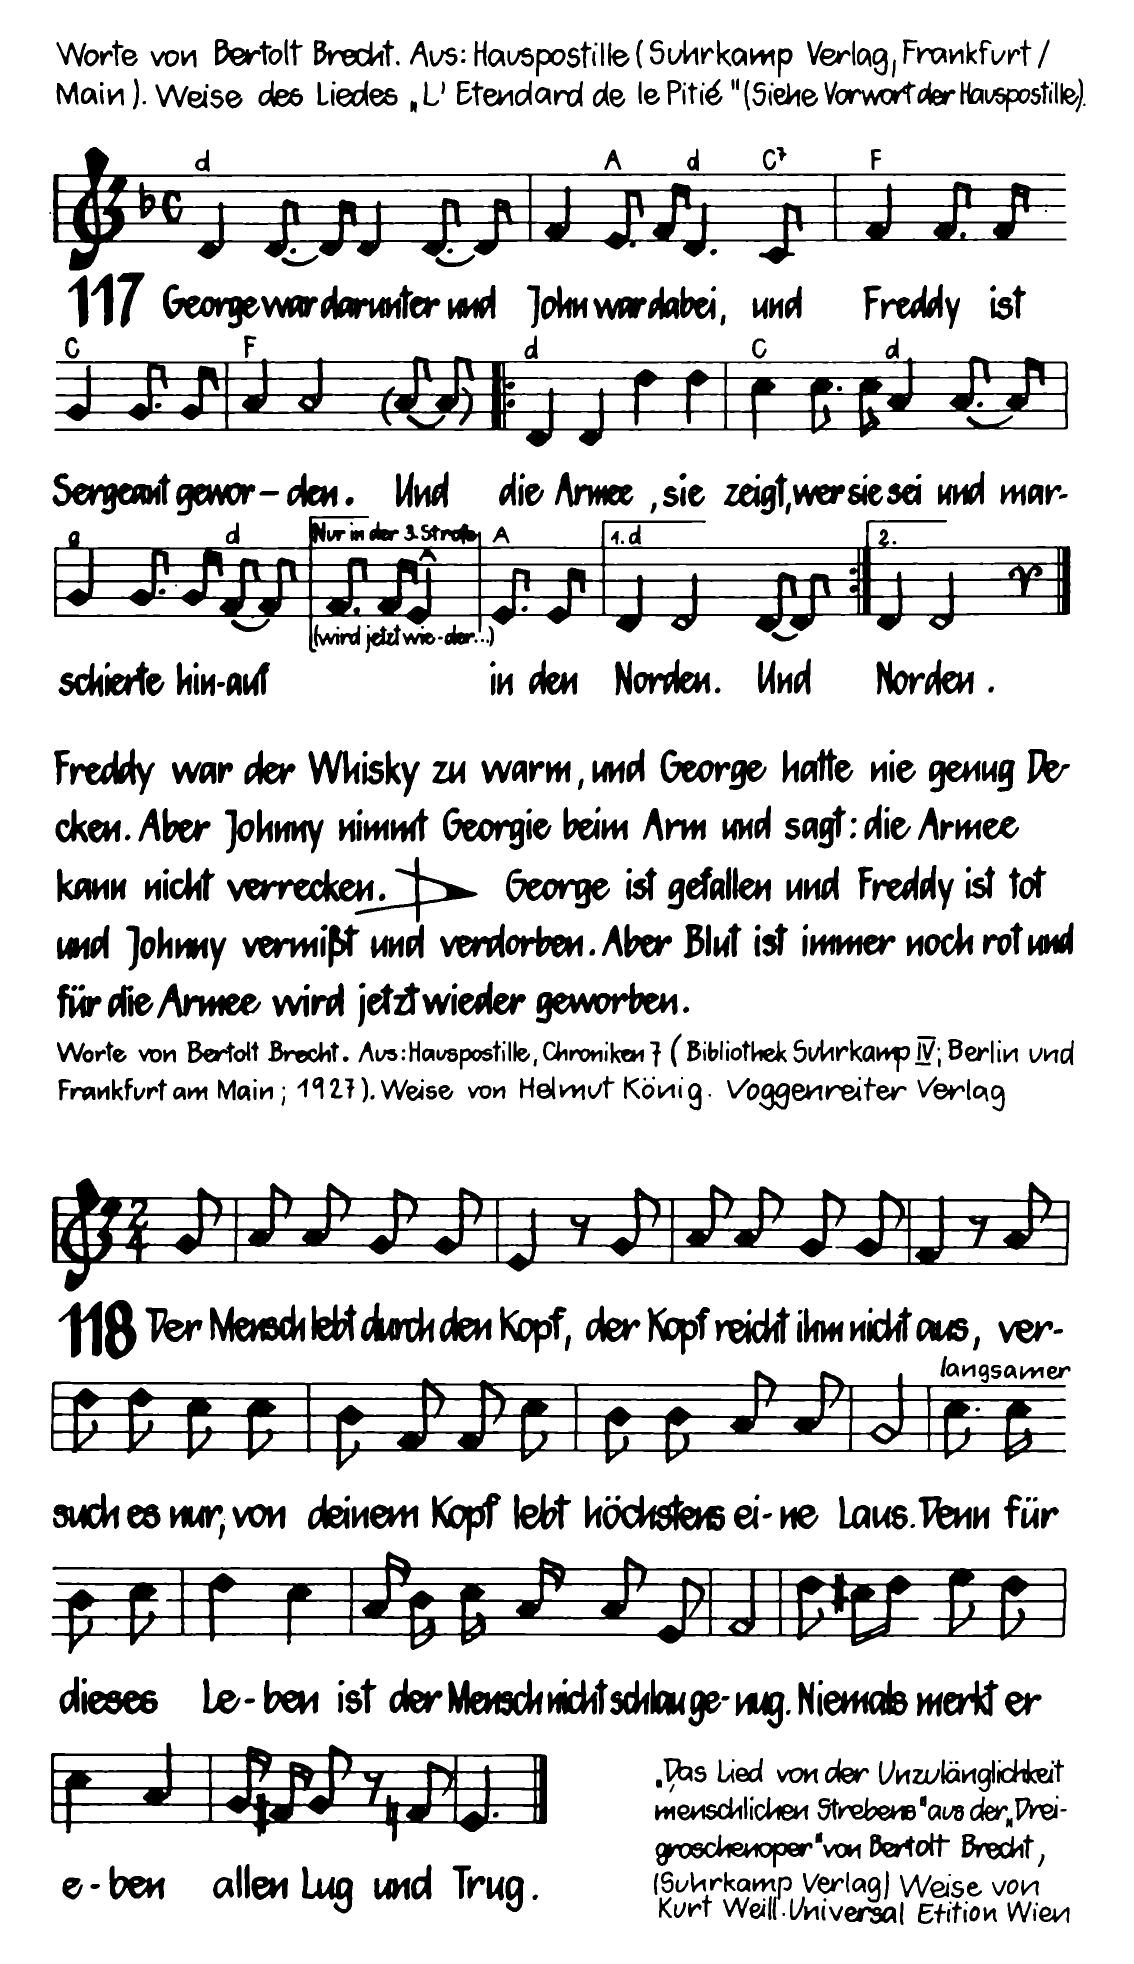 Worte von Bertolt Brecht. Aus: Hauspostille (Suhrkamp Verlag, Frankfurt/
Main). Weise des Liedes „L' Etendard de le Pitié" (Siehe Vorwort der Hauspostille).
d A d C⁷ F
117 George war darunter und John war dabei, und Freddy ist
C F d C d
Sergeant gewor - den. Und die Armee, sie zeigt, wer sie sei und mar-
g d Nur in der 3. Strofe A 1. d 2.
(wird jetzt wie-der...)
schierte hin-auf in den Norden. Und Norden.
Freddy war der Whisky zu warm, und George hatte nie genug De-
cken. Aber Johnny nimmt Georgie beim Arm und sagt: die Armee
kann nicht verrecken. George ist gefallen und Freddy ist tot
und Johnny vermißt und verdorben. Aber Blut ist immer noch rot und
für die Armee wird jetzt wieder geworben.
Worte von Bertolt Brecht. Aus: Hauspostille, Chroniken 7 (Bibliothek Suhrkamp IV; Berlin und
Frankfurt am Main; 1927). Weise von Helmut König. Voggenreiter Verlag
2
4
118 Der Mensch lebt durch den Kopf, der Kopf reicht ihm nicht aus, ver-
langsamer
such es nur, von deinem Kopf lebt höchstens ei-ne Laus. Denn für
dieses Le-ben ist der Mensch nicht schlau ge-nug. Niemals merkt er
e-ben allen Lug und Trug.
„Das Lied von der Unzulänglichkeit
menschlichen Strebens" aus der „Drei-
groschenoper" von Bertolt Brecht,
(Suhrkamp Verlag) Weise von
Kurt Weill. Universal Etition Wien